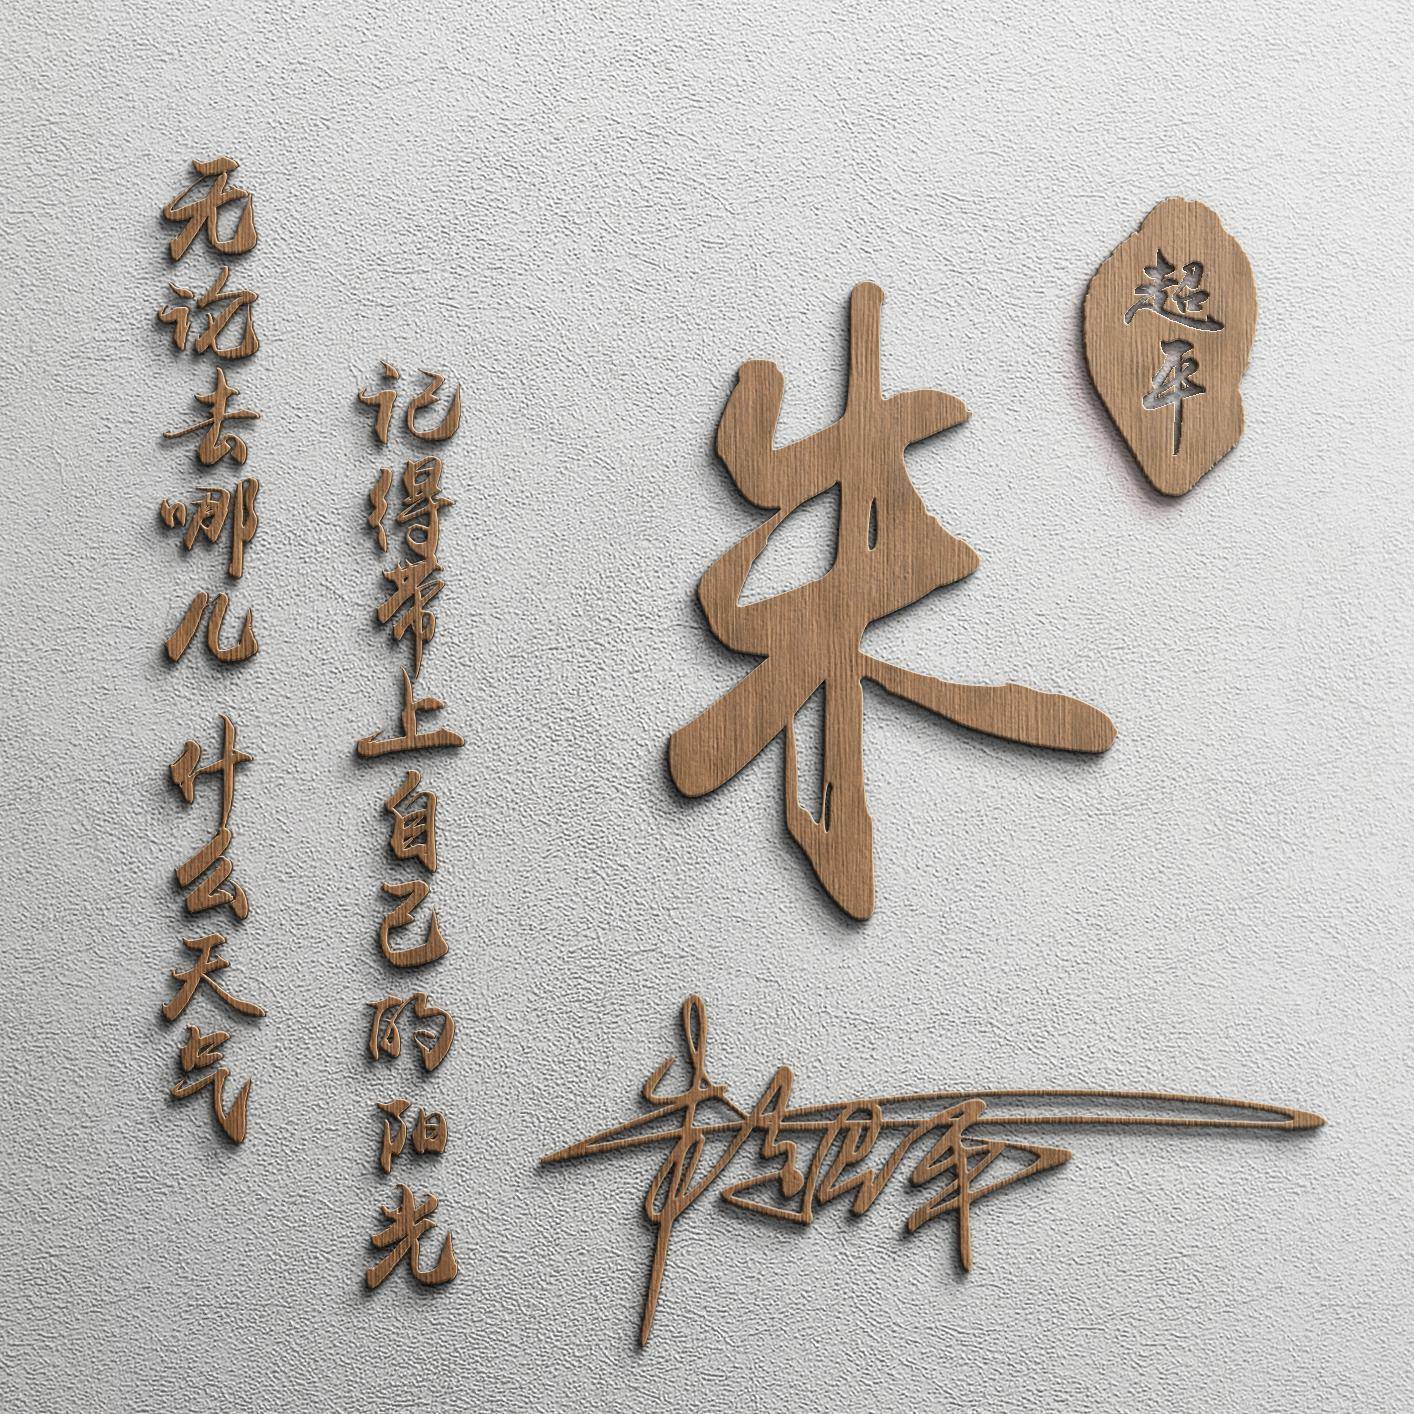 无论去哪儿 什么天气
记得带上自己的阳光
朱
超平
朱超平